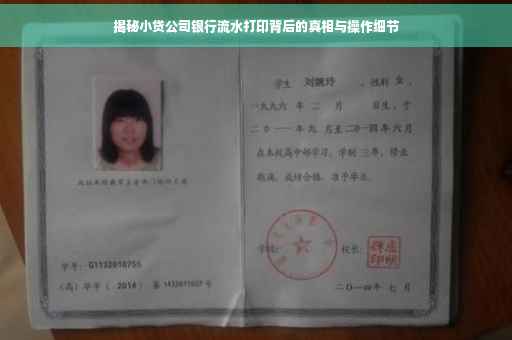 揭秘小贷公司银行流水打印背后的真相与操作细节
学生 刘婉玲 ，性别 女 ，
一九九六 年 二 月 日生，于
二〇一一年九 月至二〇一四年六月
在本校高中部学习，学制 三年，修业
期满，成绩合格，准予毕业。
学号：G1132010755
（高）毕字（ 2014 ）第 1432011027 号
学校： 校长：
二〇一四年 七 月